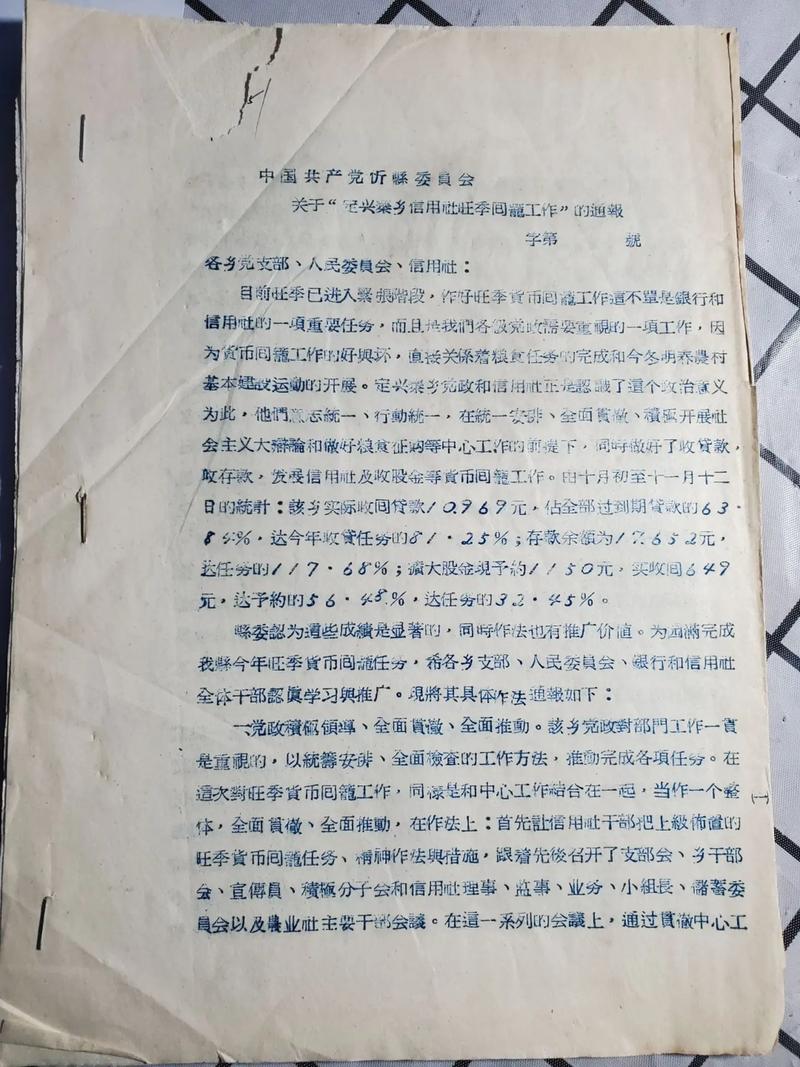 中国共产党忻縣委員会
关于“定兴寨乡信用社旺季囘籠工作”的通報
字第　　號
各乡党支部、人民委員会、信用社：
目前旺季已进入緊張階段，作好旺季貨币囘籠工作這不單是銀行和
信用社的一項重要任务，而且是我們各級党政需要重視的一項工作，因
为貨币囘籠工作的好與坏，直接关係着粮食任务的完成和今冬明春農村
基本建設运动的开展。定兴寨乡党政和信用社正是認識了這个政治意义
为此，他們意志統一、行動統一，在統一安排、全面貫徹、積極开展社
会主义大辯論和做好粮食征购等中心工作的前提下，同時做好了收貸款，
收存款，发展信用社及收股金等貨币囘籠工作。由十月初至十一月十二
日的統計：該乡实际收囘貸款10.969元，佔全部过到期貸款的63·
84%，达今年收貸任务的81·25%；存款余額为17.652元，
达任务的117·68%；擴大股金現予約1150元，实收囘649
元，达予約的56·48%，达任务的32·45%。
縣委認为這些成績是显著的，同時作法也有推广价値。为圆滿完成
我縣今年旺季貨币囘籠任务，希各乡支部、人民委員会、銀行和信用社
全体干部認眞学习與推广。現將其具体作法通報如下：
一党政積極領導、全面貫徹、全面推動。該乡党政對部門工作一貫
是重視的，以統籌安排、全面檢查的工作方法，推動完成各項任务。在
這次對旺季貨币囘籠工作，同樣是和中心工作結合在一起，当作一个整
体，全面貫徹、全面推動，在作法上：首先訨信用社干部把上級佈置的
旺季貨币囘籠任务、精神作法與措施，跟着先後召开了支部会、乡干部
会、宣傳員、積極分子会和信用社理事、监事、业务、小組長、儲蓄委
員会以及農业社主要干部会議。在這一系列的会議上，通过貫徹中心工
(一)